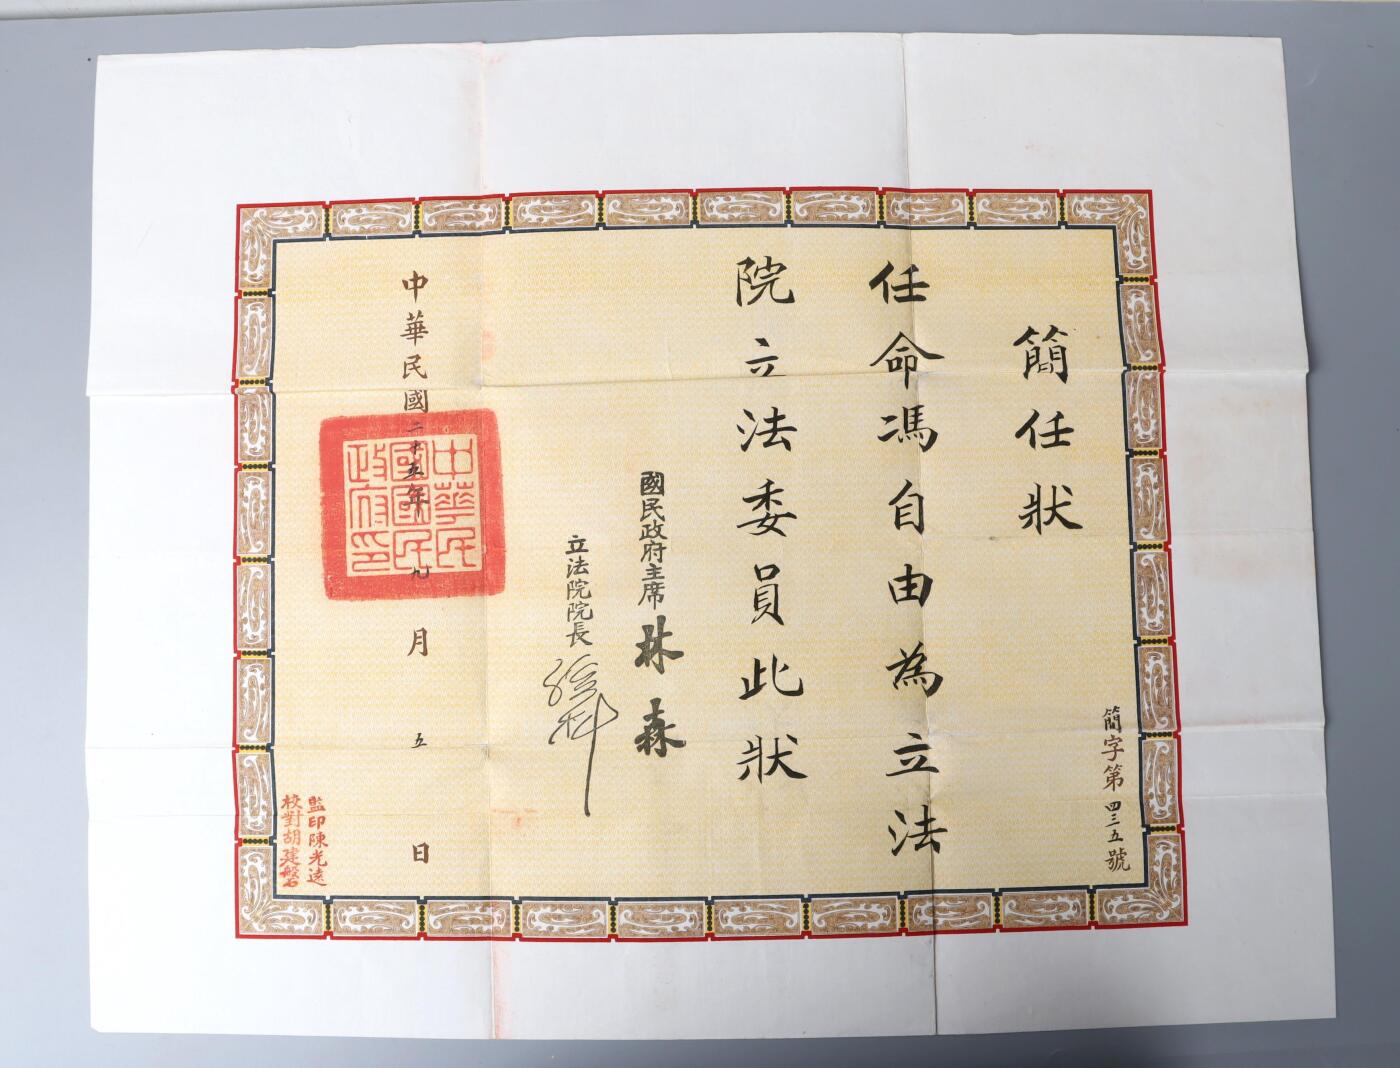 簡任狀
任命馮自由為立法
院立法委員此狀
國民政府主席 林森
立法院院長 孫科
中華民國二十五年九月五日
中華民
國國民
政府印
簡字第四三五號
監印陳光遠
校對胡建磐